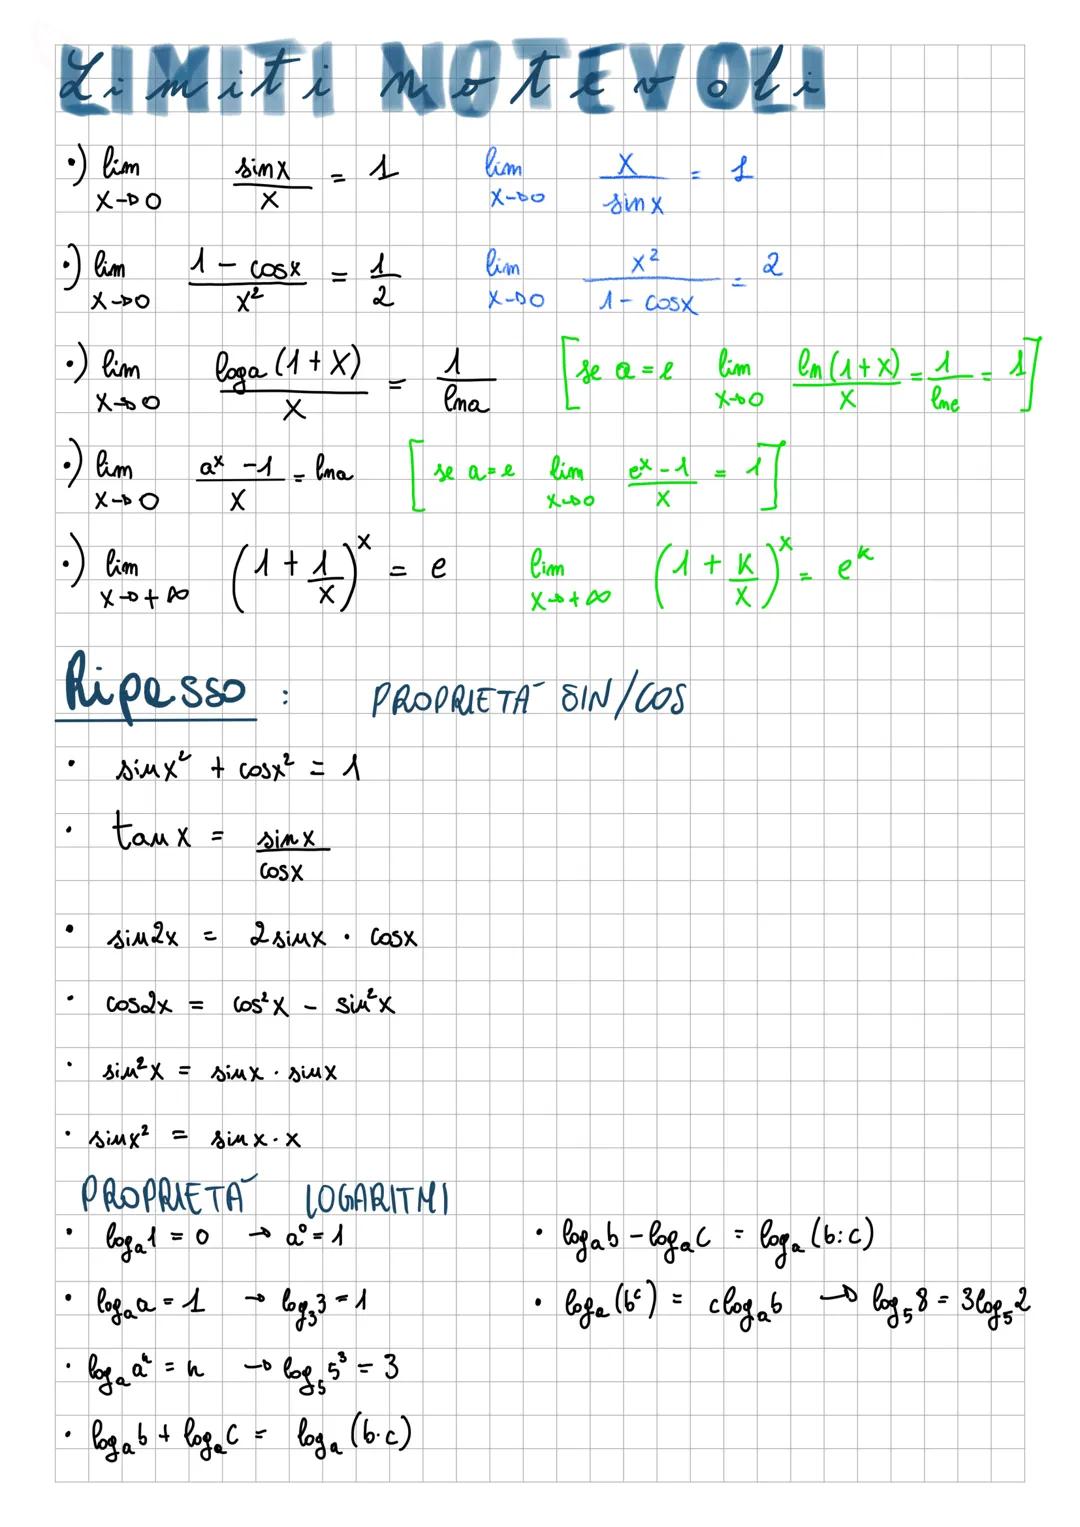 Limiti notevoli
•) lim x→0 sinx/x = 1 lim x→0 x/sinx = 1
•) lim x→0 1 - cosx/x² = 1/2 lim x→0 x²/1 - cosx = 2
•) lim x→0 loga (1 + x)/x = 1/lna [se a = e lim x→0 ln (1 + x)/x = 1/lne = 1]
•) lim x→0 aˣ - 1/x = lna [se a = e lim x→0 eˣ - 1/x = 1]
•) lim x→+∞ (1 + 1/x)ˣ = e lim x→+∞ (1 + K/x)ˣ = eᵏ
Ripasso : PROPRIETA' SIN/COS
• sinx² + cosx² = 1
• tanx = sinx/cosx
• sin2x = 2sinx · cosx
• cos2x = cos²x - sin²x
• sin²x = sinx · sinx
• sinx² = sinx · x
PROPRIETA' LOGARITMI
• logₐ1 = 0 → a⁰ = 1
• logₐa = 1 → log₃3 = 1
• logₐaⁿ = n → log₅5³ = 3
• logₐb + logₐc = logₐ (b·c)
• logₐb - logₐc = logₐ (b:c)
• logₐ (bᶜ) = clogₐb → log₅8 = 3log₅2